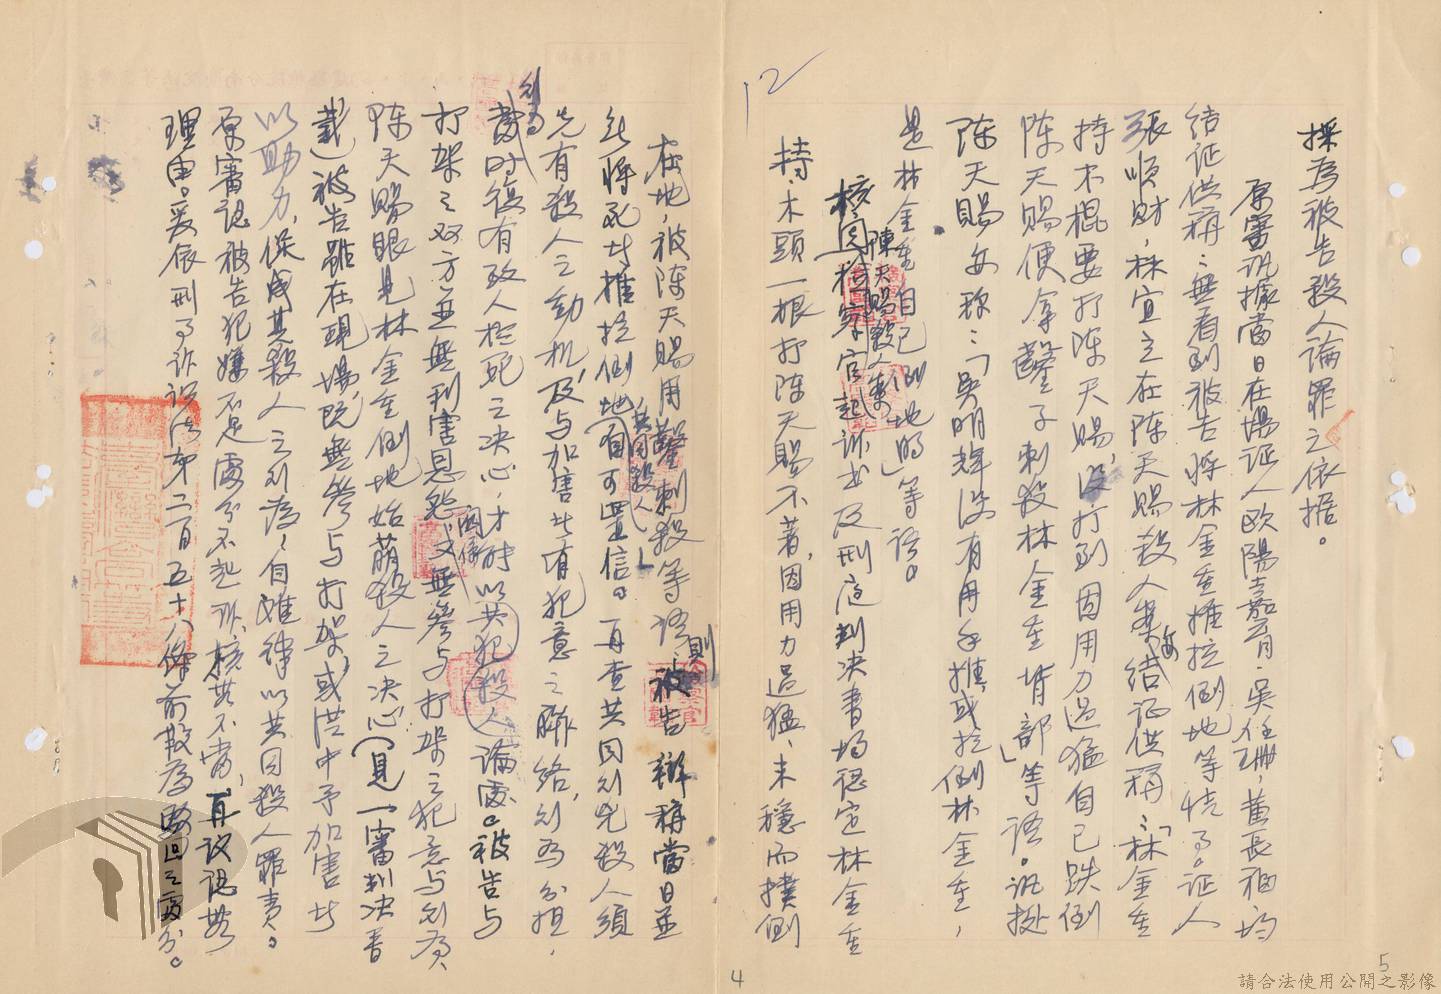 採為被告殺人論罪之依據。
原審訊據當日在場證人歐陽嘉育、吳任珊、黃長福均
結証供稱:無看到被告將林金重推拉倒地等情事。証人
張順財,林宜立在陳天賜殺人案結証供稱:「林金重
持木棍要打陳天賜,沒打到因用力過猛自己跌倒
陳天賜便拿鑿子刺殺林金重背部」等語。訊據
陳天賜亦称:「吳明輝沒有用手推或拉倒林金重,
是林金重自己倒地的」等語。
陳天賜殺人案
核閱檢察官起訴書及刑庭判決書均認定林金重
持木頭一根打陳天賜不著,因用力過猛、未穩而撲倒
12
在地,被陳天賜用鑿刺殺等語,則被告辯稱當日並
無將死者推拉倒地自可置信。再查共同行兇殺人須
共同殺人
先有殺人之動机,及与加害者有犯意之聯絡,行為分担,
行為
當時復有致人於死之决心,才能以共犯殺人論處。被告与
打架之双方並無利害恩怨關係又無參与打架之犯意与行為,
陳天賜眼見林金重倒地始萌殺人之决心(見一審判决書
載)被告雖在現場,既無參与打架,或從中予加害者
以助力,促成其殺人之行為,自难律以共同殺人罪責。
原審認被告犯嫌不足處分不起訴,核無不當,再议認無
理由。爰依刑事訴訟法第二百五十八條前段為駁回之處分。
4
5
請合法使用公開之影像